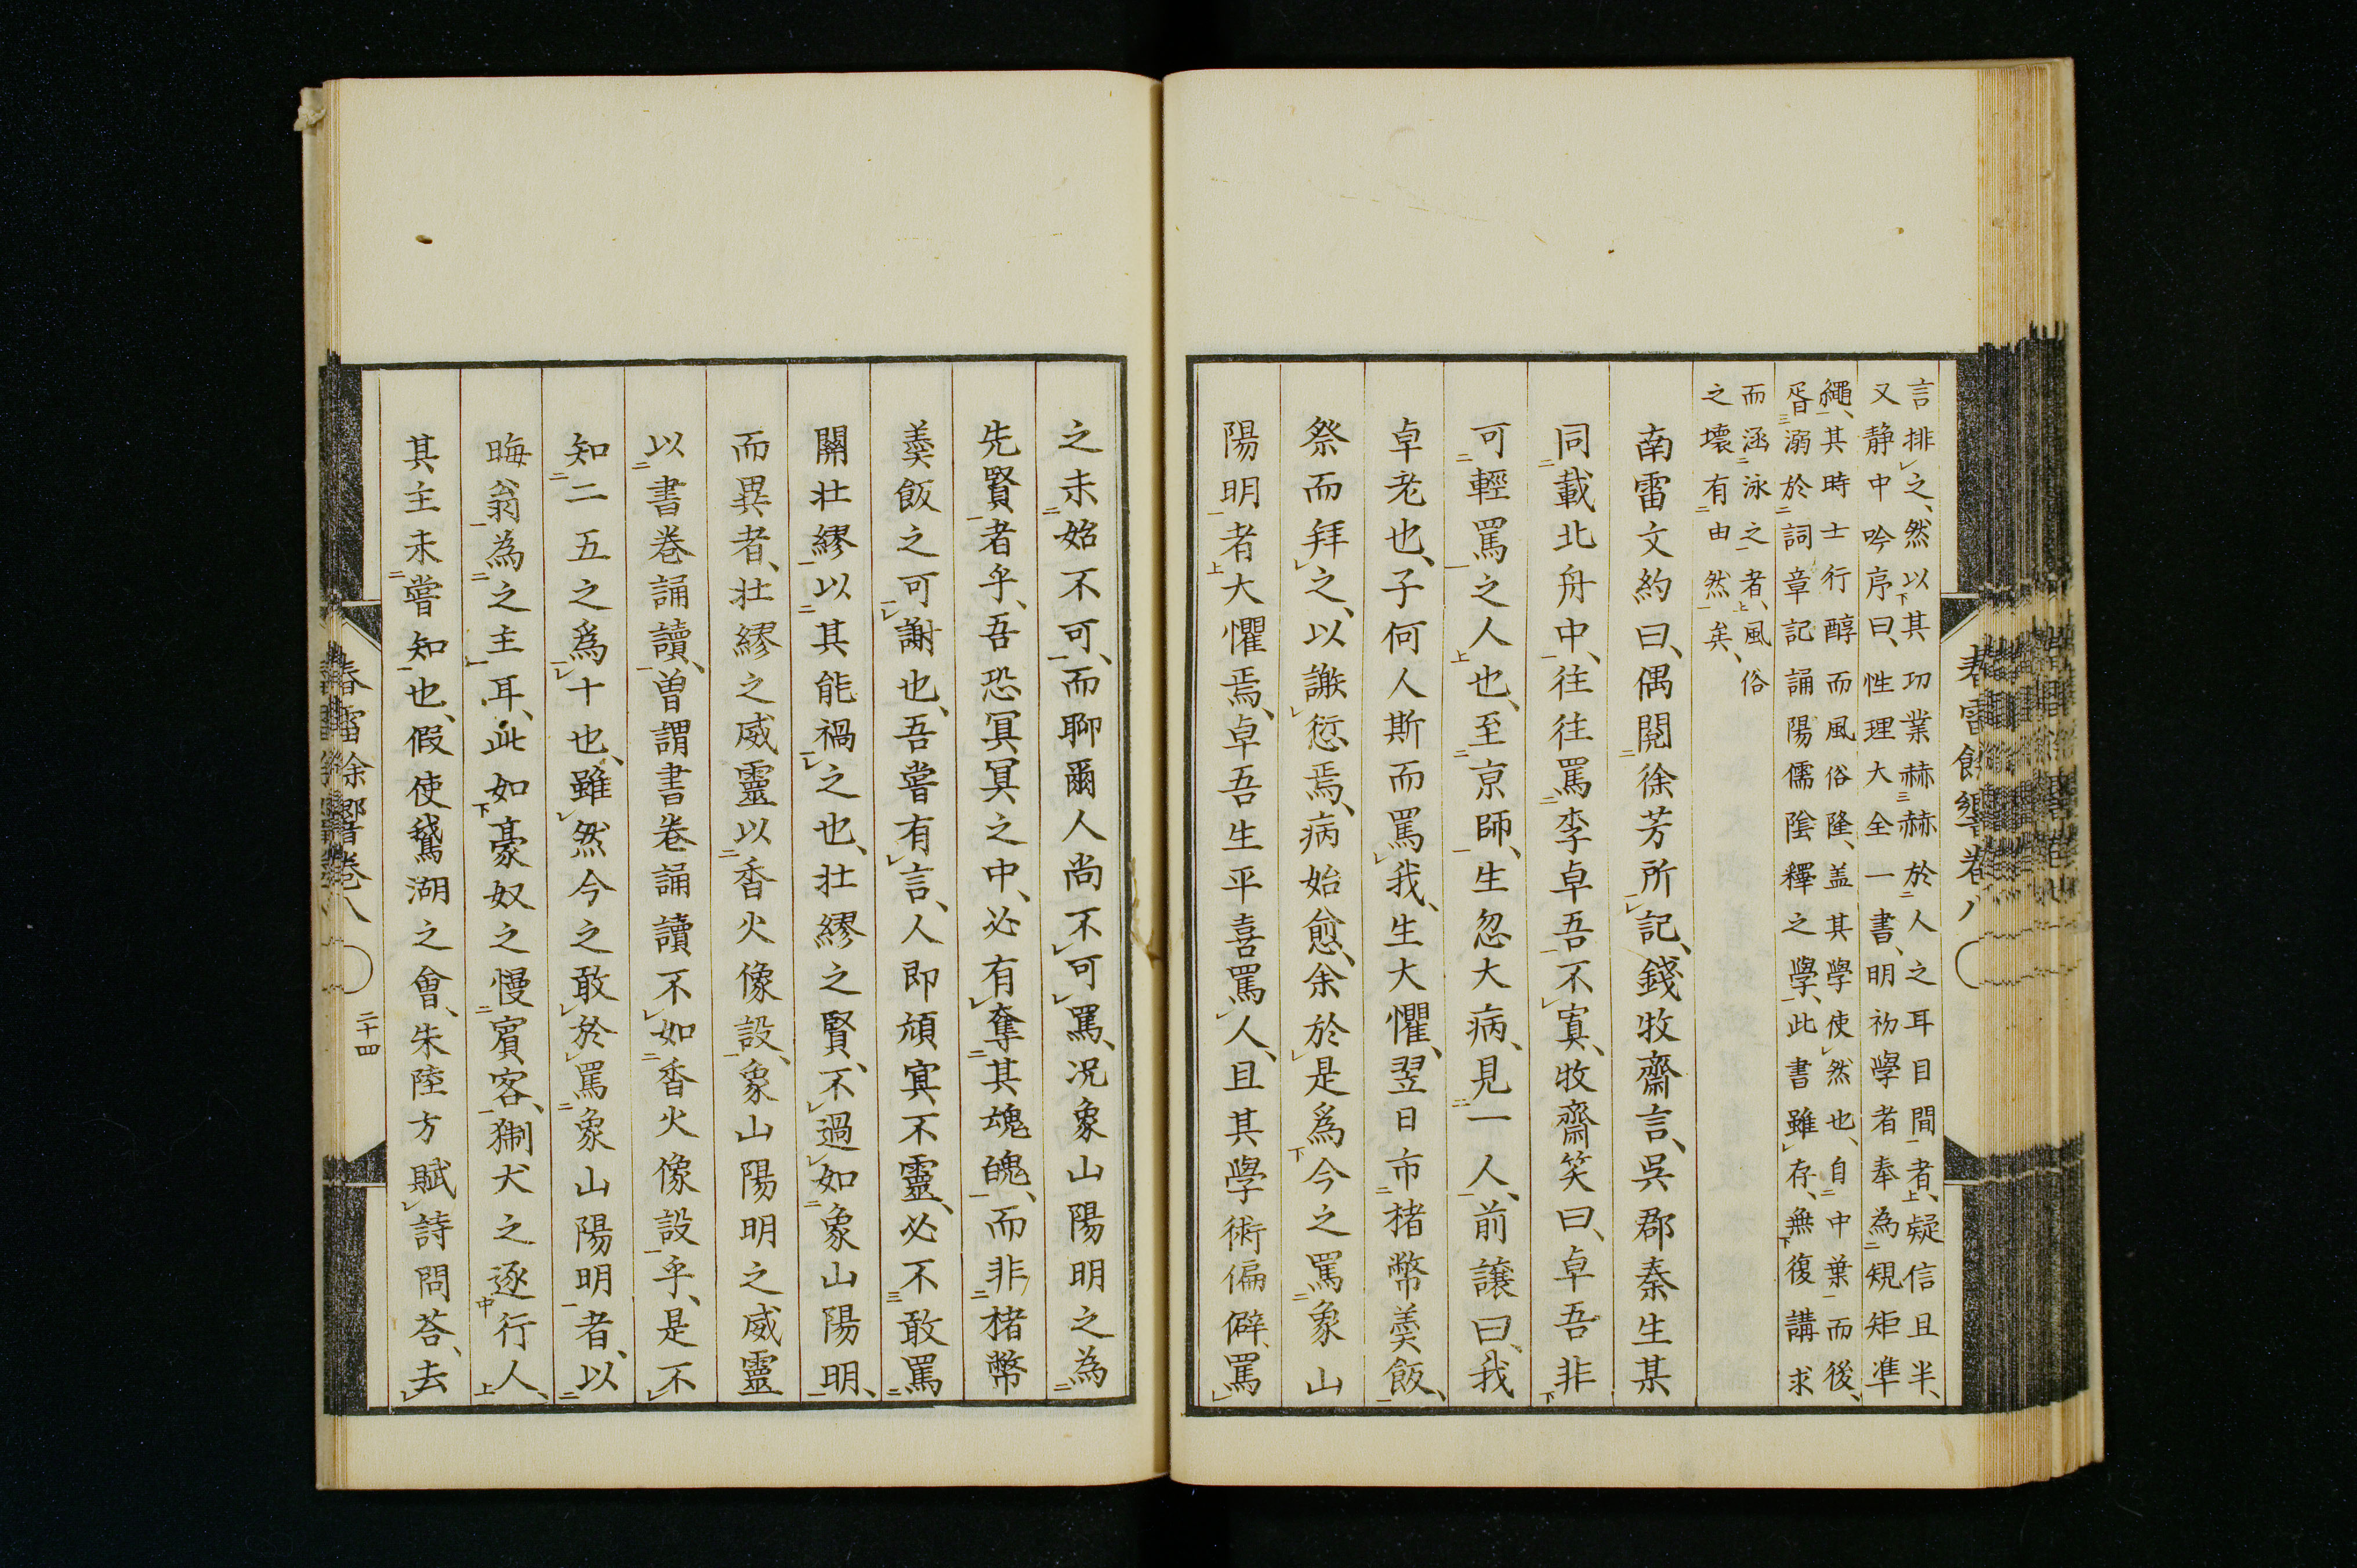 言排之、然以其功業赫赫於人之耳目間者、疑信且半、
又静中吟序曰、性理大全一書、明初學者奉為規矩準
繩、其時士行醇而風俗隆、盖其學使然也、自中葉而後、
胥溺於詞章記誦陽儒陰釋之學、此書雖存、無復講求
而涵泳之者、風俗
之壞有由然矣、
南雷文約曰、偶閱徐芳所記、錢牧齋言、吳郡秦生某
同載北舟中、往往罵李卓吾不寘、牧齋笑曰、卓吾非
可輕罵之人也、至京師、生忽大病、見一人、前讓曰、我
卓老也、子何人斯而罵我、生大懼、翌日市楮幣羮飯、
祭而拜之、以謝愆焉、病始愈、余於是爲今之罵象山
陽明者大懼焉、卓吾生平喜罵人、且其學術偏僻、罵
之未始不可、而聊爾人尚不可罵、况象山陽明之為
先賢者乎、吾恐冥冥之中、必有奪其魂魄、而非楮幣
羮飯之可謝也、吾嘗有言、人即頑寘不靈、必不敢罵
關壮繆以其能禍之也、壮繆之賢、不過如象山陽明、
而異者、壮繆之威靈以香火像設、象山陽明之威靈
以書巻誦讀、曽謂書巻誦讀不如香火像設乎、是不
知二五之爲十也、雖然今之敢於罵象山陽明者、以
晦翁為之主耳、此如豪奴之慢賓客、猘犬之逐行人、
其主未嘗知也、假使鵞湖之會、朱陸方賦詩問荅、去
春雷餘響巻八
二十四